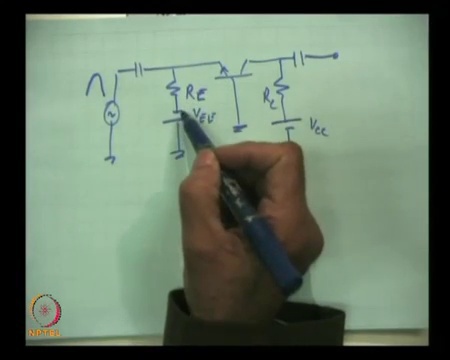 R_E
V_EE
R_C
V_CC
NPTEL